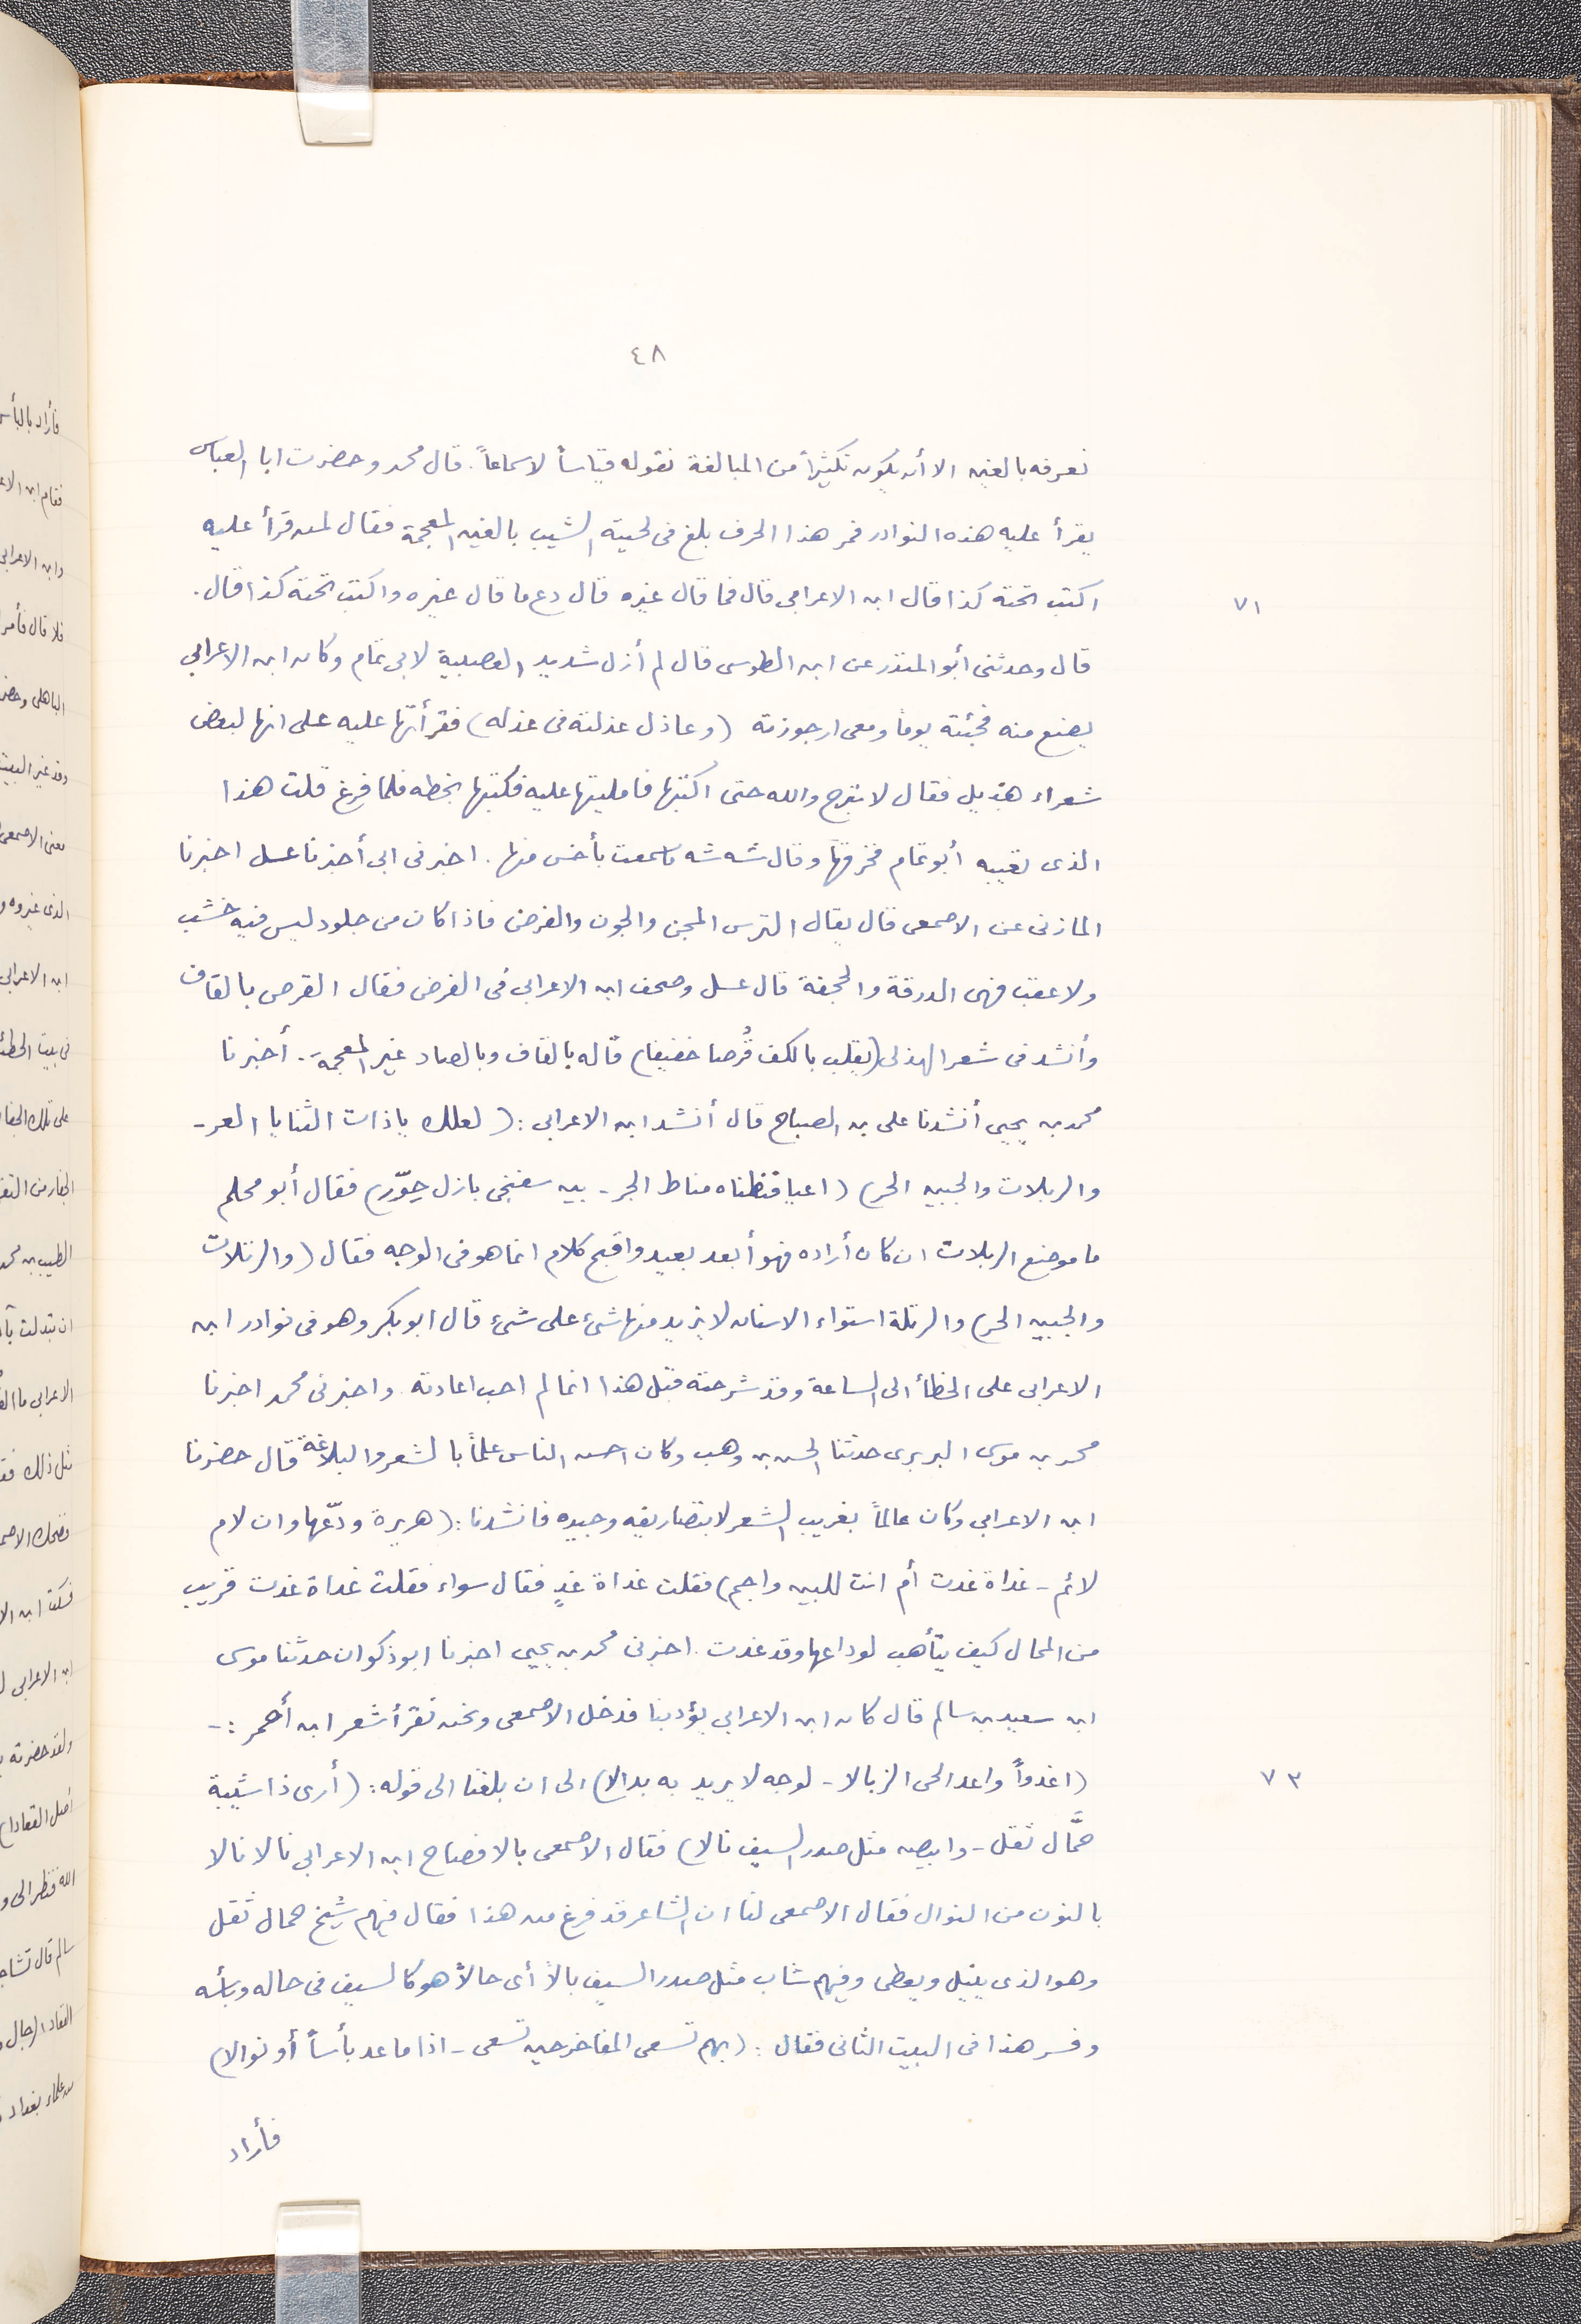 ٤٨
نعرفه بالغين الا أن يكون تكثيراً من المبالغة نقوله قياساً لاسماعاً. قال محمد وحضرت ابا العباس
يقرأ عليه هذه النوادر فمر هذا الحرف بلغ فى لحيته الشيب بالغين المعجمة فقال لمن قرأ عليه
اكتب تحته كذا قال ابن الاعرابى قال فما قال غيره قال دع ما قال غيره واكتب تحته كذا قال.
٧١
قال وحدثنى أبو المنذر عن ابن الطوسى قال لم أزل شديد العصبية لابى تمام وكان ابن الاعرابى
يضع منه فجئته يوماً ومعى ارجوزته (وعاذل عذلته فى عذله) فقرأتها عليه على انها لبعض
شعراء هذيل فقال لا تبرح والله حتى اكتبها فامليتها عليه فكتبها بخطه فلما فرغ قلت هذا
الذى تعيبه أبو تمام فخرقها وقال شه شه ما سمعت بأخس منها. اخبرنى ابى أخبرنا عسل اخبرنا
المازنى عن الاصمعى قال يقال الترس المجن والجون والفرض فاذا كان من جلود ليس فيه خشب
ولا عقب فهى الدرقة والحجفة قال عسل وصحف ابن الاعرابى فى الفرض فقال القرص بالقاف
وأنشد فى شعر الهذلى (يقلب بالكف قُرصا خفيفا) قاله بالقاف وبالصاد غير المعجمة. أخبرنا
محمد بن يحيى أنشدنا على بن الصباح قال أنشد ابن الاعرابى: (لعلك ياذات الثنايا الغر-
والربلات والجبين الحر) (اعيا فنطناه مناط الجر- بين سفنجى بازل حِوّر) فقال أبو محلم
ما موضع الربلات ان كان أراده فهو أبعد بعيد واقبح كلام انما هو فى الوجه فقال (والرتلات
والجبين الحر) والرتلة استواء الاسنان لا يزيد منها شئ على شئ قال ابوبكر وهو فى نوادر ابن
الاعرابى على الخطأ الى الساعة وقد شرحته قبل هذا انما لم احب اعادته. واخبرنى محمد اخبرنا
محمد بن موسى البربرى حدثنا الحسن بن وهب وكان احسن الناس علماً بالشعر والبلاغة قال حضرنا
ابن الاعرابى وكان عالماً بغريب الشعر لا بتصاريفه وجيده فانشدنا: (هريرة ودّعها وان لام
لائم - غداة غدت أم انت للبين واجم) فقلت غداة غدٍ فقال سواء فقلت غداة غدت قريب
من المحال كيف يتأهب لوداعها وقد غدت. اخبرنى محمد بن يحيى اخبرنا ابوذكوان حدثنا موسى
ابن سعيد بن سالم قال كان ابن الاعرابى يؤدبنا فدخل الاصمعى ونحن نقرأ شعر ابن أحمر:-
(اغدواً واعد الحى الزيالا- لوجه لا يريد به بدالا) الى ان بلغنا الى قوله: (أرى ذا شيبة
٧٣
حمَّال ثقل- وابيض مثل صدر السيف نالا) فقال الاصمعى بالافصاح ابن الاعرابى نالا نالا
بالنون من النوال فقال الاصمعى لنا ان الشاعر قد فرغ من هذا فقال فيهم شيخ حمال ثقل
وهو الذى ينيل ويعطى وفيهم شاب مثل صدر السيف بالاً أى حالاً هو كالسيف فى حاله وبأسه
وفسر هذا فى البيت الثانى فقال: (بهم تسعى المفاخر حين تسعى- اذا ما عد بأساً أو نوالا)
فأراد